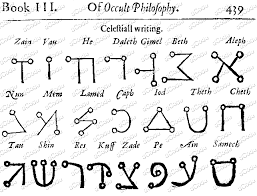 Book III. Of Occult Philosophy. 439
Celestiall writing.
Zain Vau He Daleth Gimel Beth Aleph
Nun Mem Lamed Caph Iod Theth Cheth
Tau Shin Res Kuff Zade Pe Ain Samech